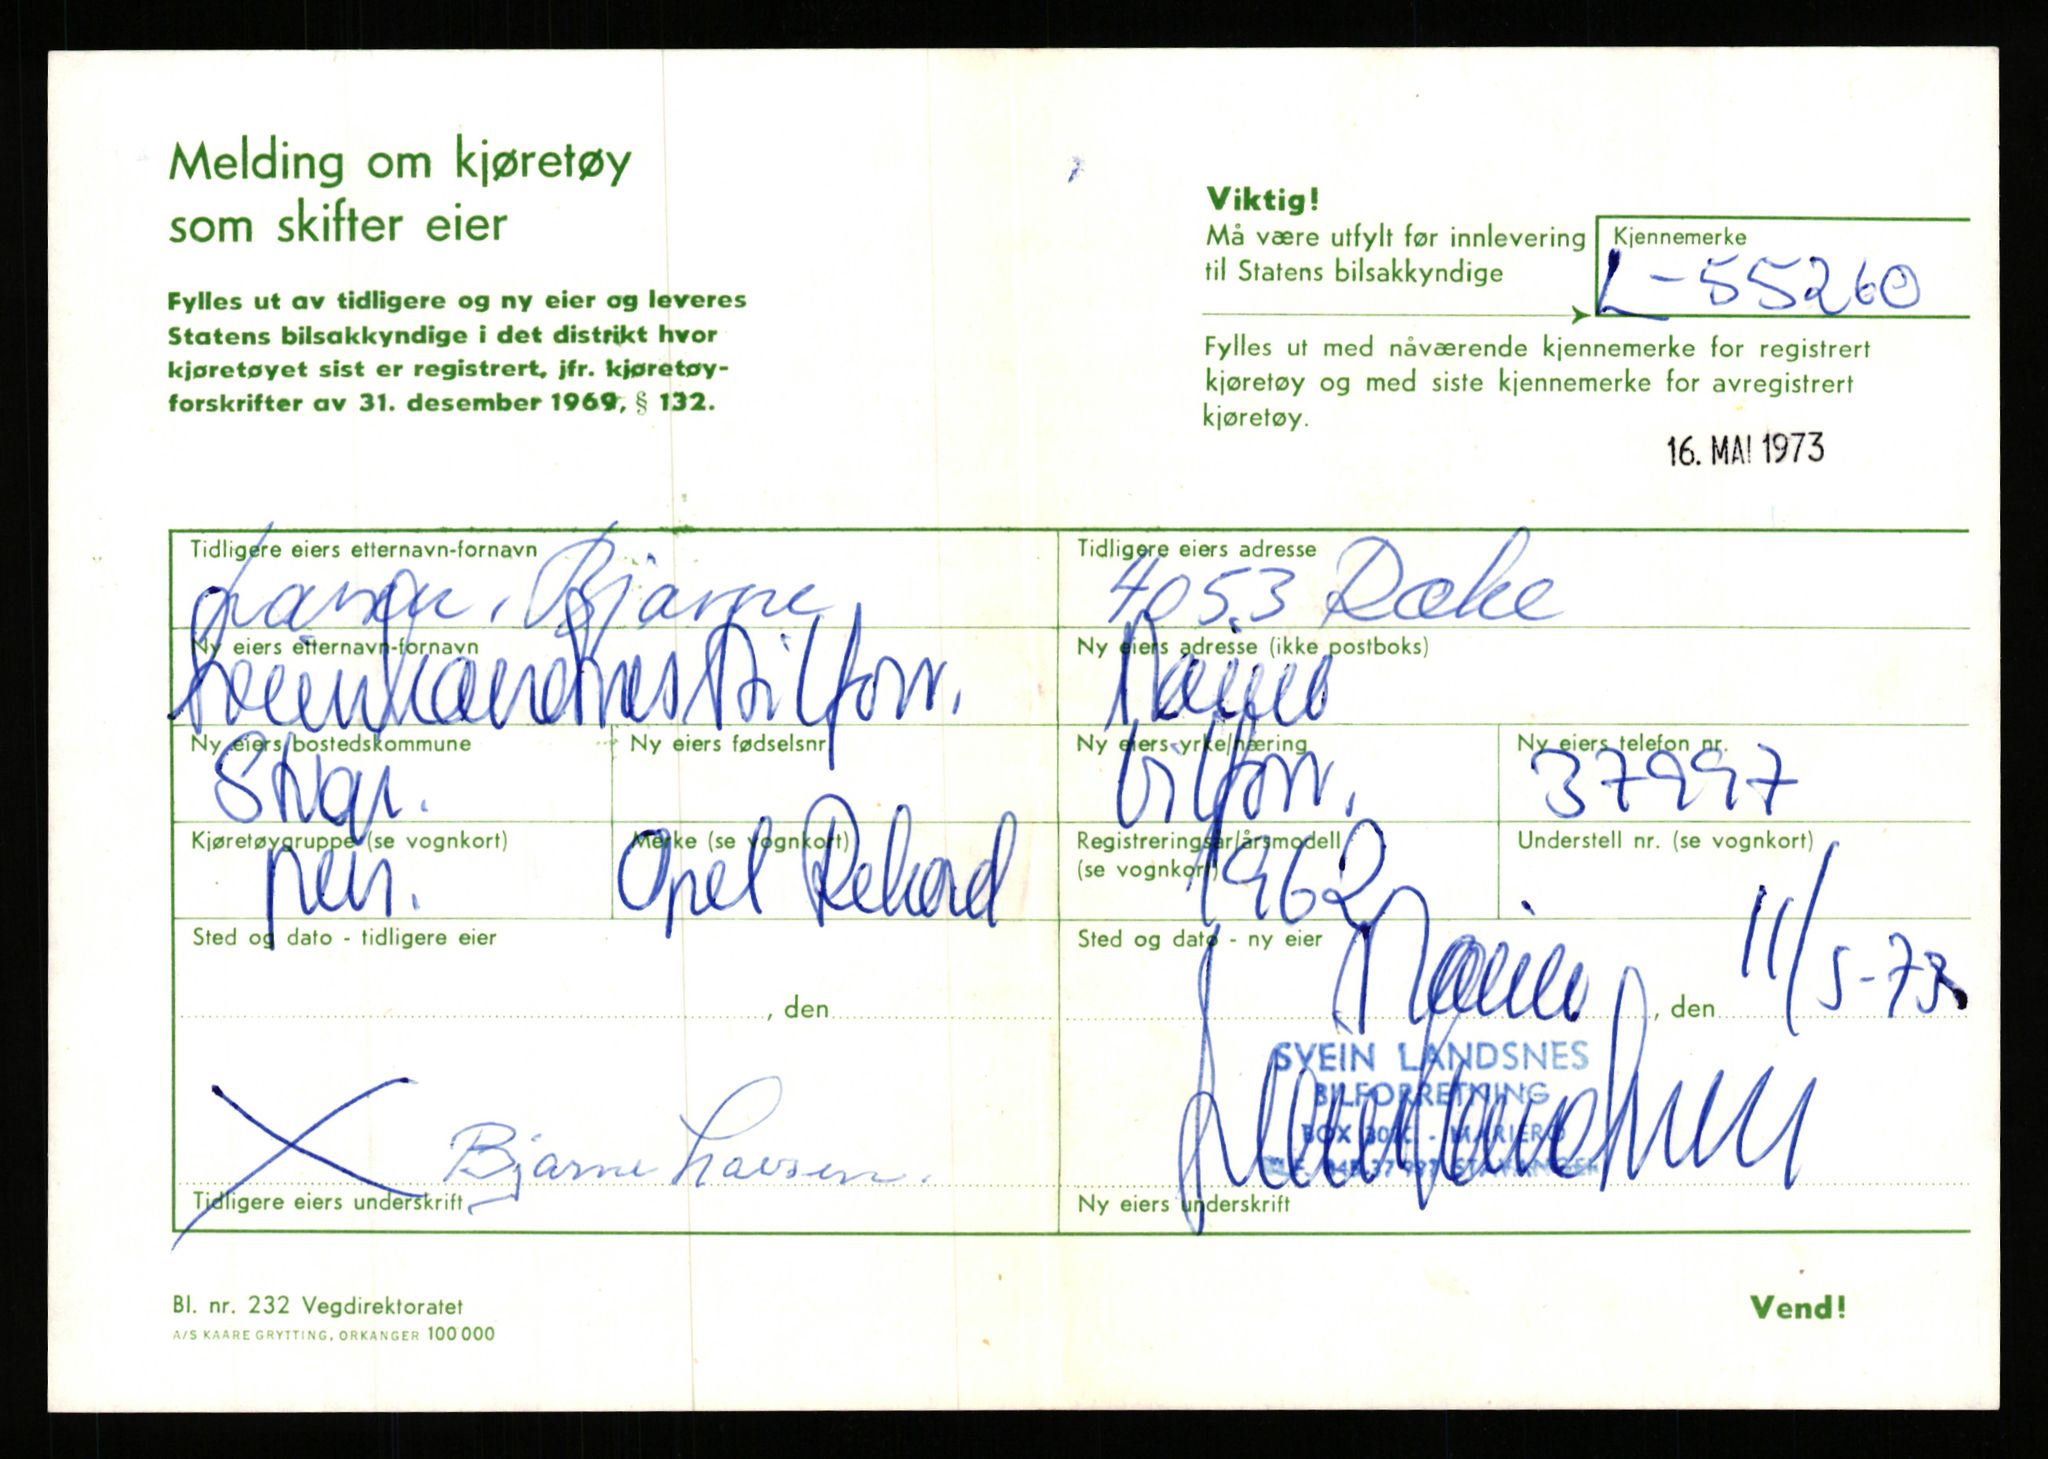 Melding om kjøretøy
som skifter eier
Fylles ut av tidligere og ny eier og leveres
Statens bilsakkyndige i det distrikt hvor
kjøretøyet sist er registrert, jfr. kjøretøy-
forskrifter av 31. desember 1969, § 132.
Viktig!
Må være utfylt før innlevering
til Statens bilsakkyndige
Kjennemerke
L-55260
Fylles ut med nåværende kjennemerke for registrert
kjøretøy og med siste kjennemerke for avregistrert
kjøretøy.
16. MAI 1973
Tidligere eiers etternavn-fornavn
Larsen, Bjarne
Tidligere eiers adresse
4053 Ræke
Ny eiers etternavn-fornavn
Svein Landsnes Bilforr.
Ny eiers adresse (ikke postboks)
Ny eiers bostedskommune
Stvgr.
Ny eiers fødselsnr.
Ny eiers yrke/næring
bilforr.
Ny eiers telefon nr.
37997
Kjøretøygruppe (se vognkort)
pers.
Merke (se vognkort)
Opel Rekord
Registreringsår/årsmodell
(se vognkort)
1962
Understell nr. (se vognkort)
Sted og dato - tidligere eier
, den
Sted og dato - ny eier
, den 11/5-73
SVEIN LANDSNES
BILFORRETNING
BOX 3010 - MARIERO
TLF. 045-37 997 STAVANGER
Bjarne Larsen.
Tidligere eiers underskrift
Svein Landsnes
Ny eiers underskrift
Bl. nr. 232 Vegdirektoratet
A/S KAARE GRYTTING, ORKANGER 100 000
Vend!